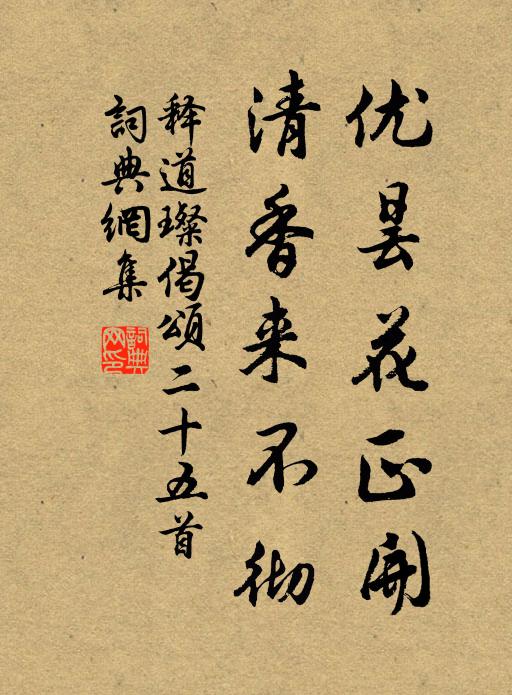 优昙花正開
清香来不彻
释道璨偈頌二十五首
詞典網集
詞典网印